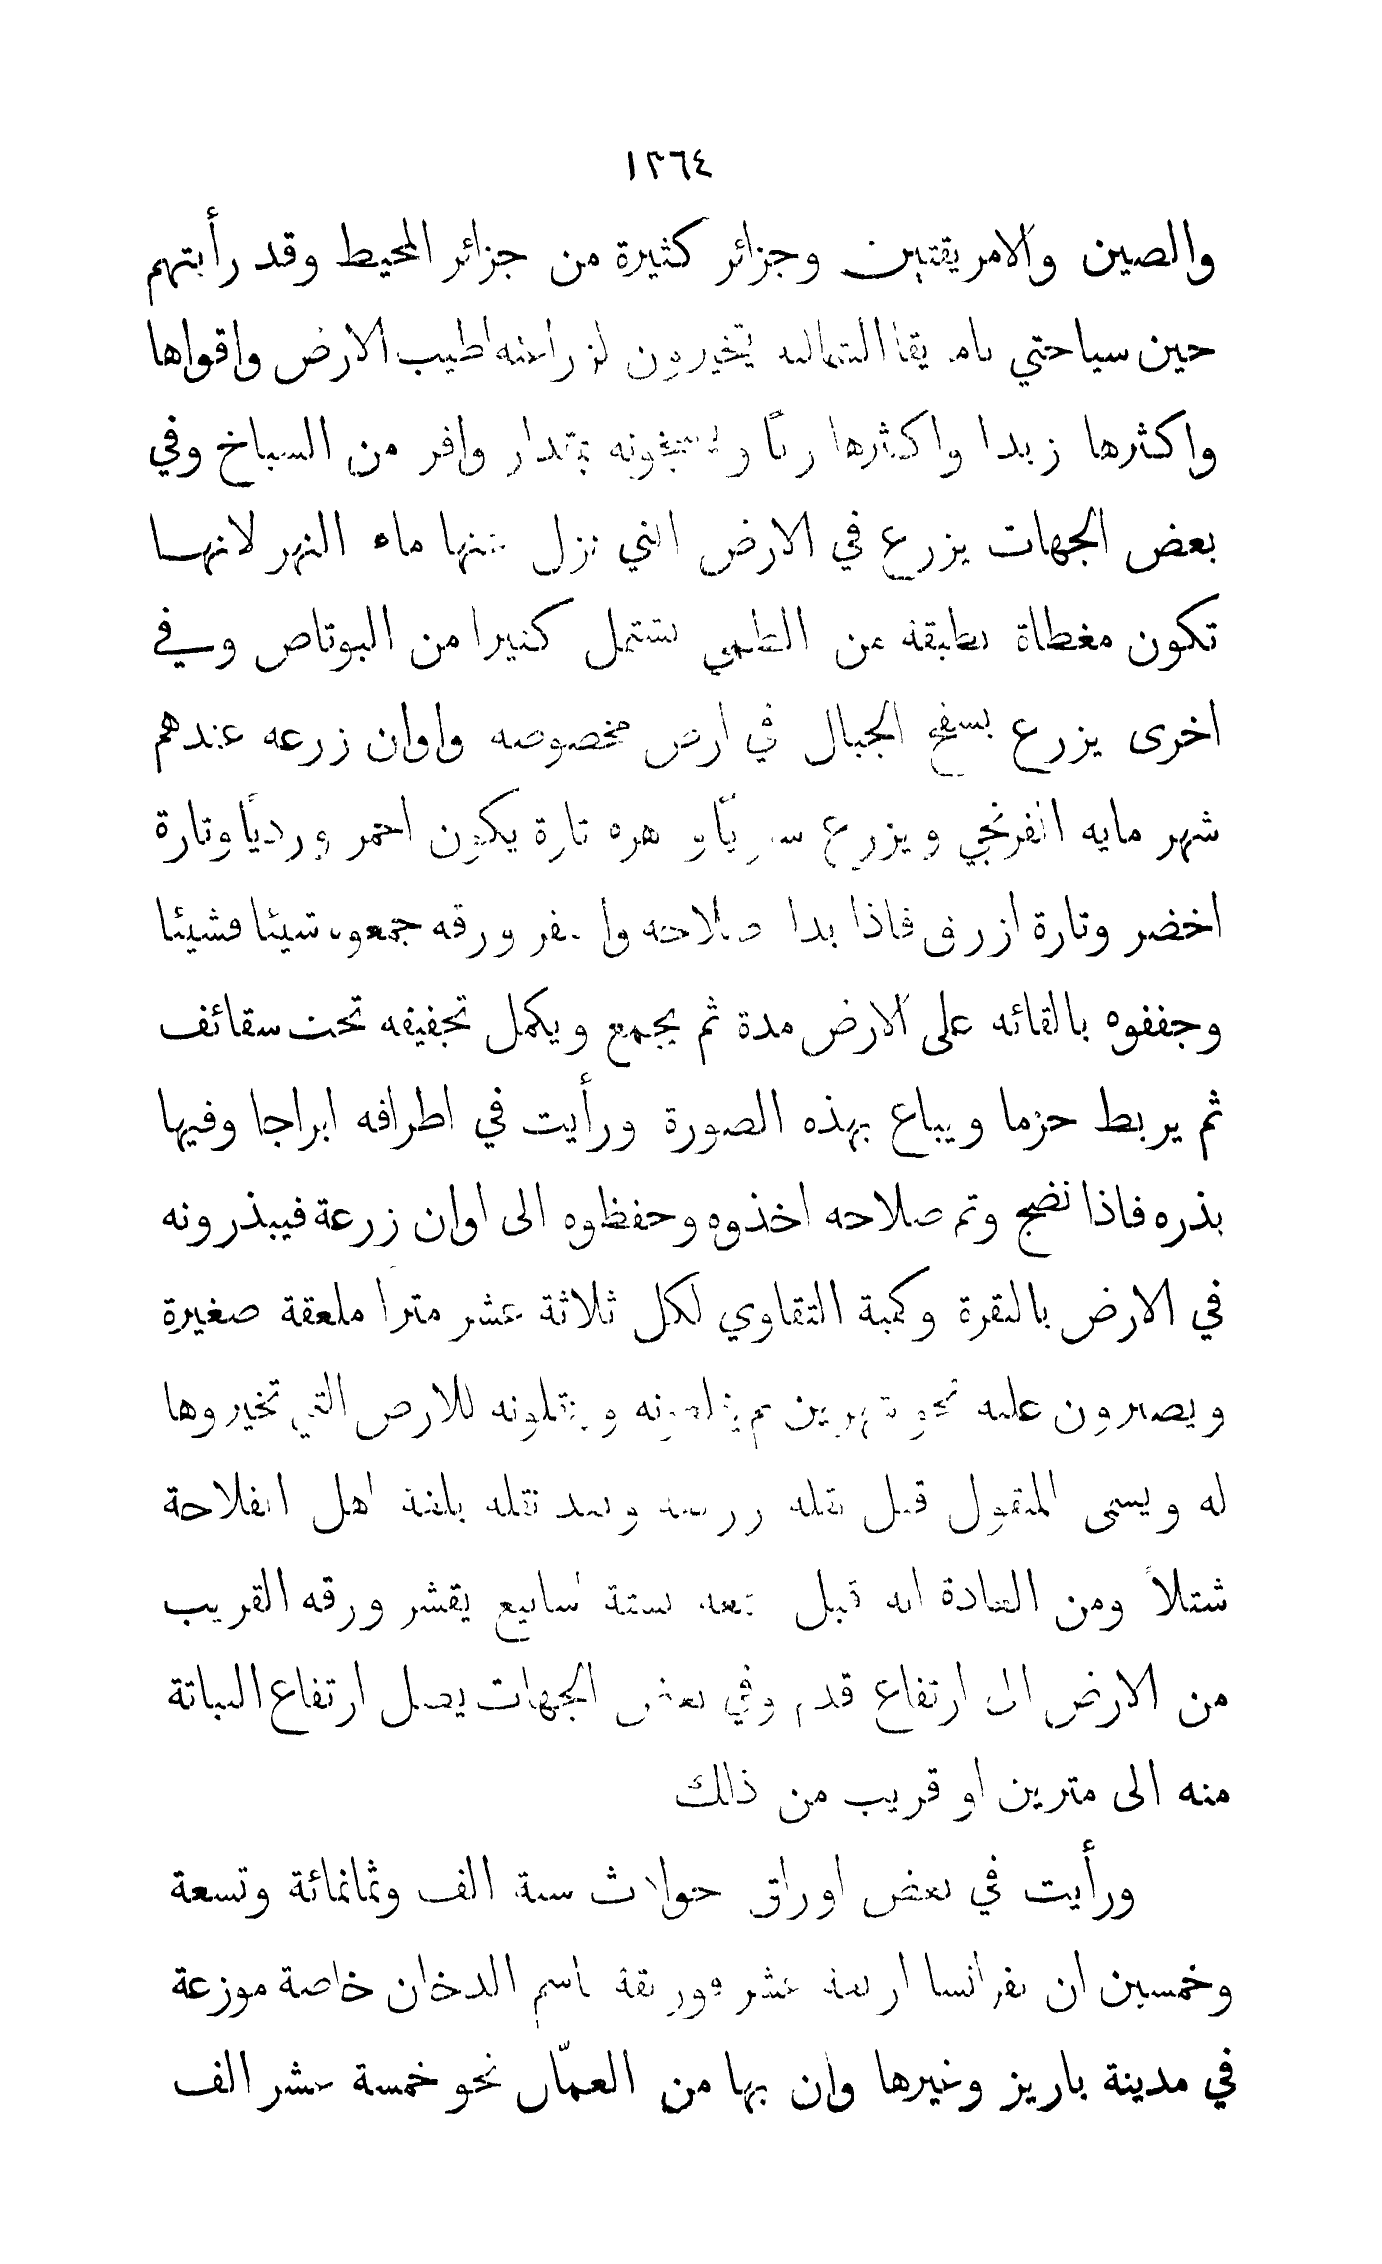 ١٣٦٤
والصين والامريقتين وجزائر كثيرة من جزائر المحيط وقد رأيتهم
حين سياحتي بامريقا الشمالية يتخيرون لزراعته اطيب الارض واقواها
واكثرها زبدا واكثرها ريًا ويسبخونه بمقدار وافر من السباخ وفي
بعض الجهات يزرع في الارض التي نزل عنها ماء النهر لانها
تكون مغطاة بطبقة من الطمي تشتمل كثيرا من البوتاص وفي
اخرى يزرع بسفح الجبال في ارض مخصوصه واوان زرعه عندهم
شهر مايه الفرنجي ويزرع زهره تارة يكون احمر ورديًا وتارة
اخضر وتارة ازرق فاذا بدا صلاحه واصفر ورقه جمعوه شيئا فشيئا
وجففوه بالقائه على الارض مدة ثم يجمع ويكمل تجفيفه تحت سقائف
ثم يربط حزما ويباع بهذه الصورة ورأيت في اطرافه ابراجا وفيها
بذره فاذا نضج وتم صلاحه اخذوه وحفظوه الى اوان زرعة فيبذرونه
في الارض بالنقرة وكمية التقاوي لكل ثلاثة عشر مترا ملعقة صغيرة
ويصبرون عليه نحو شهرين ثم يقلعونه وينقلونه للارض التي تخيروها
له ويسمى المنقول قبل نقله زريعه وبعد نقله بلغة اهل الفلاحة
شتلاً ومن العادة انه قبل بستة اسابيع يقشر ورقه القريب
من الارض الى ارتفاع قدم وفي بعض الجهات يصل ارتفاع النباتة
منه الى مترين او قريب من ذلك
ورأيت في بعض اوراق حوادث سنة الف وثمانمائة وتسعة
وخمسين ان بفرانسا اربعة عشر فوريقة باسم الدخان خاصة موزعة
في مدينة باريز وغيرها وان بها من العمّال نحو خمسة عشر الف